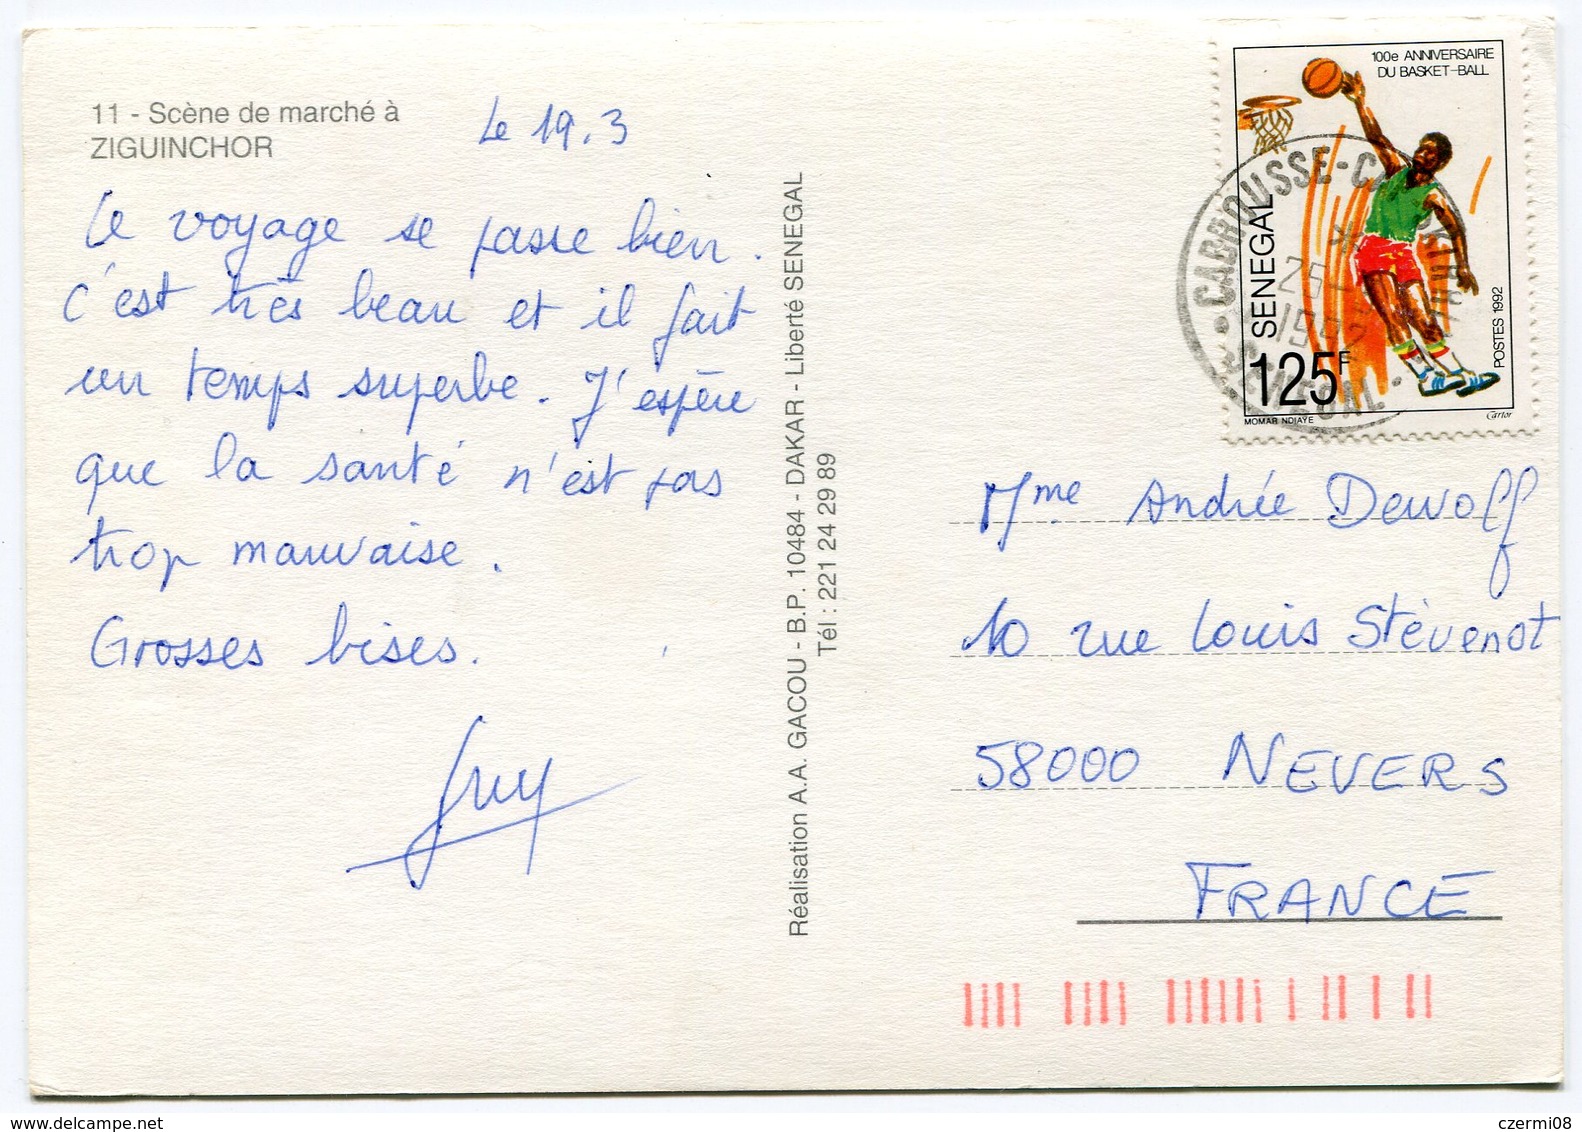 11 - Scène de marché à
ZIGUINCHOR
Le 19.3
Le voyage se passe bien.
C'est très beau et il fait
un temps superbe. J'espère
que la santé n'est pas
trop mauvaise.
Grosses bises.
Guy
Réalisation A.A. GACOU - B.P. 10484 - DAKAR - Liberté SENEGAL
Tél : 221 24 29 89
100e ANNIVERSAIRE
DU BASKET-BALL
SENEGAL
125F
POSTES 1992
MOMAR NDIAYE
Cartor
CABROUSSE-
1992
SENEGAL
Mme Andrée Dewolf
10 rue Louis Stévenot
58000 NEVERS
FRANCE
www.delcampe.net
czermi08